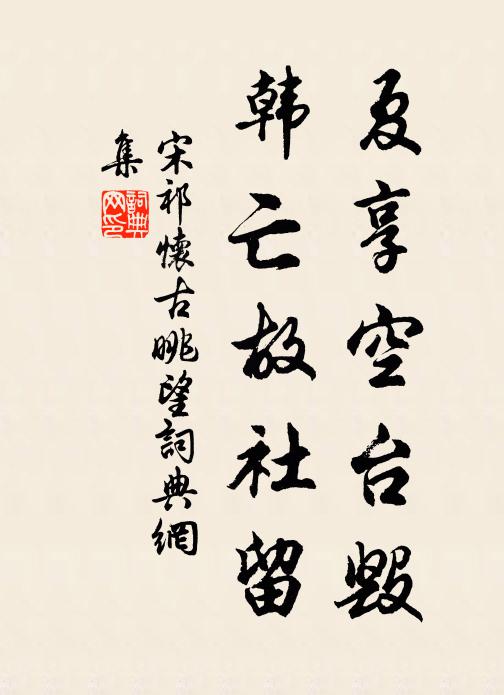 夏享空台毁
韩亡故社留
宋祁懷古眺望詞典網
集
詞典网印